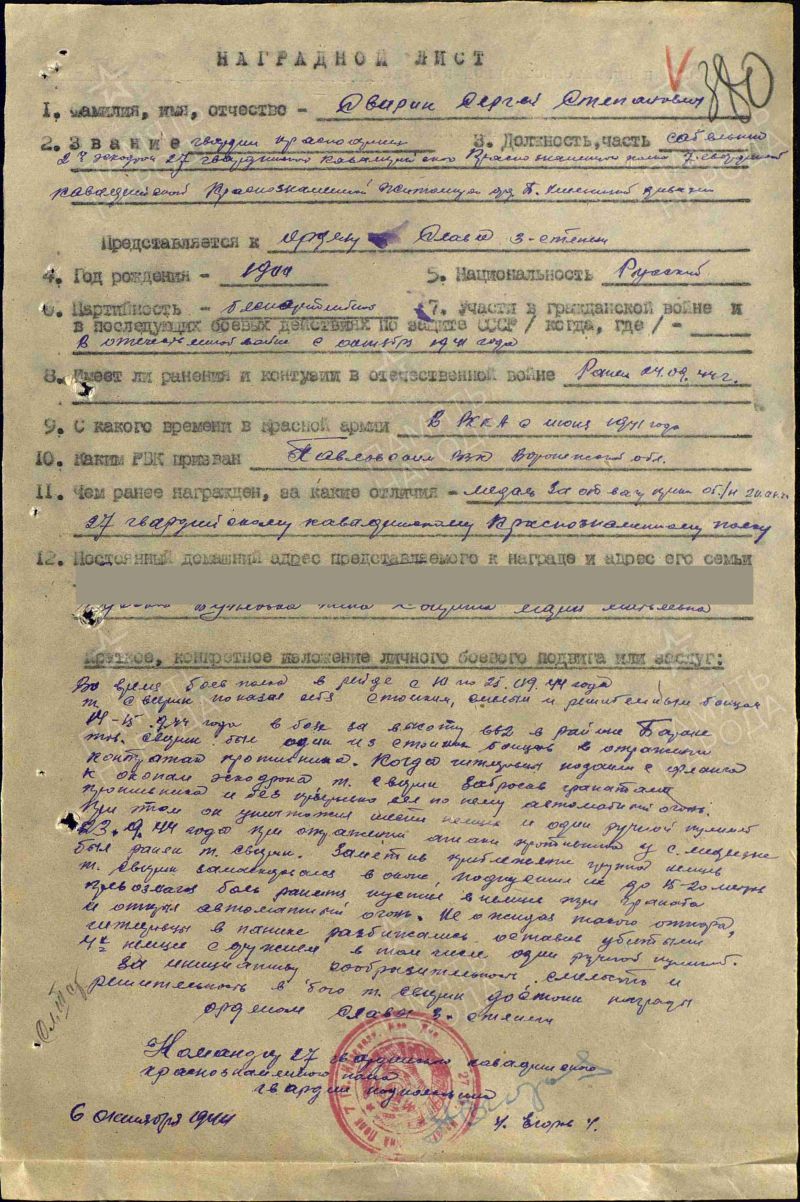 НАГРАДНОЙ ЛИСТ
V 380
1. Фамилия, имя, отчество - Сварик Сергей Степанович
2. Звание гвардии красноармеец 3. Должность, часть сабельник
2го эскадрона 27 гвардейского кавалерийского Краснознаменного полка 7 гвардейской
кавалерийской Краснознаменной Житомирской орд. Б. Хмельницкого дивизии
Представляется к ордену Славы 3-степени
4. Год рождения - 5. Национальность Русский
6. Партийность - беспартийный 7. Участи в гражданской войне и
в последующих боевых действиях по защите СССР / когда, где / -
В отечественной войне с октября 1941 года
8. Имеет ли ранения и контузии в отечественной войне Ранен 24.09.44г.
9. С какого времени в Красной армии В РККА с июня 1941 года
10. Каким РВК призван Павловским РВК Воронежской обл.
11. Чем ранее награжден, за какие отличия - медаль За отвагу
27 гвардейскому кавалерийскому Краснознаменному полку
12. Постоянный домашний адрес представляемого к награде и адрес его семьи
Краткое, конкретное изложение личного боевого подвига или заслуг:
Во время боев полка в рейде с 10 по 25.09.44 года
т. Сварик показал себя стойким, смелым и решительным бойцом
14-15.9.44 года в бою за высоту 662 в районе
тов. Сварик был один из стойких бойцов в отражении
контратак противника. Когда гитлеровцы подошли с фланга
к окопам эскадрона т. Сварик забросав гранатами
противника и без прерывно вел по нему автоматный огонь.
При том он уничтожил шесть немцев и один ручной пулемет
23.9.44 года при отражении атаки противника у с.
был ранен т. Сварик. Заметив приближение группы немцев
т. Сварик замаскировался в окопе, подпустил их до 15-20 метров
превозмогая боль раненый пустил в немцев три гранаты
и открыл автоматный огонь. Не ожидая такого отпора,
гитлеровцы в панике разбежались оставив убитыми
4х немцев с оружием в том числе один ручной пулемет.
За инициативу сообразительность смелость и
решительность в бою т. Сварик достоин награды
орденом Славы 3-степени
Командир 27 гвардейского кавалерийского
краснознаменного полка
гвардии подполковник
6 октября 1944
ПАМЯТЬ НАРОДА